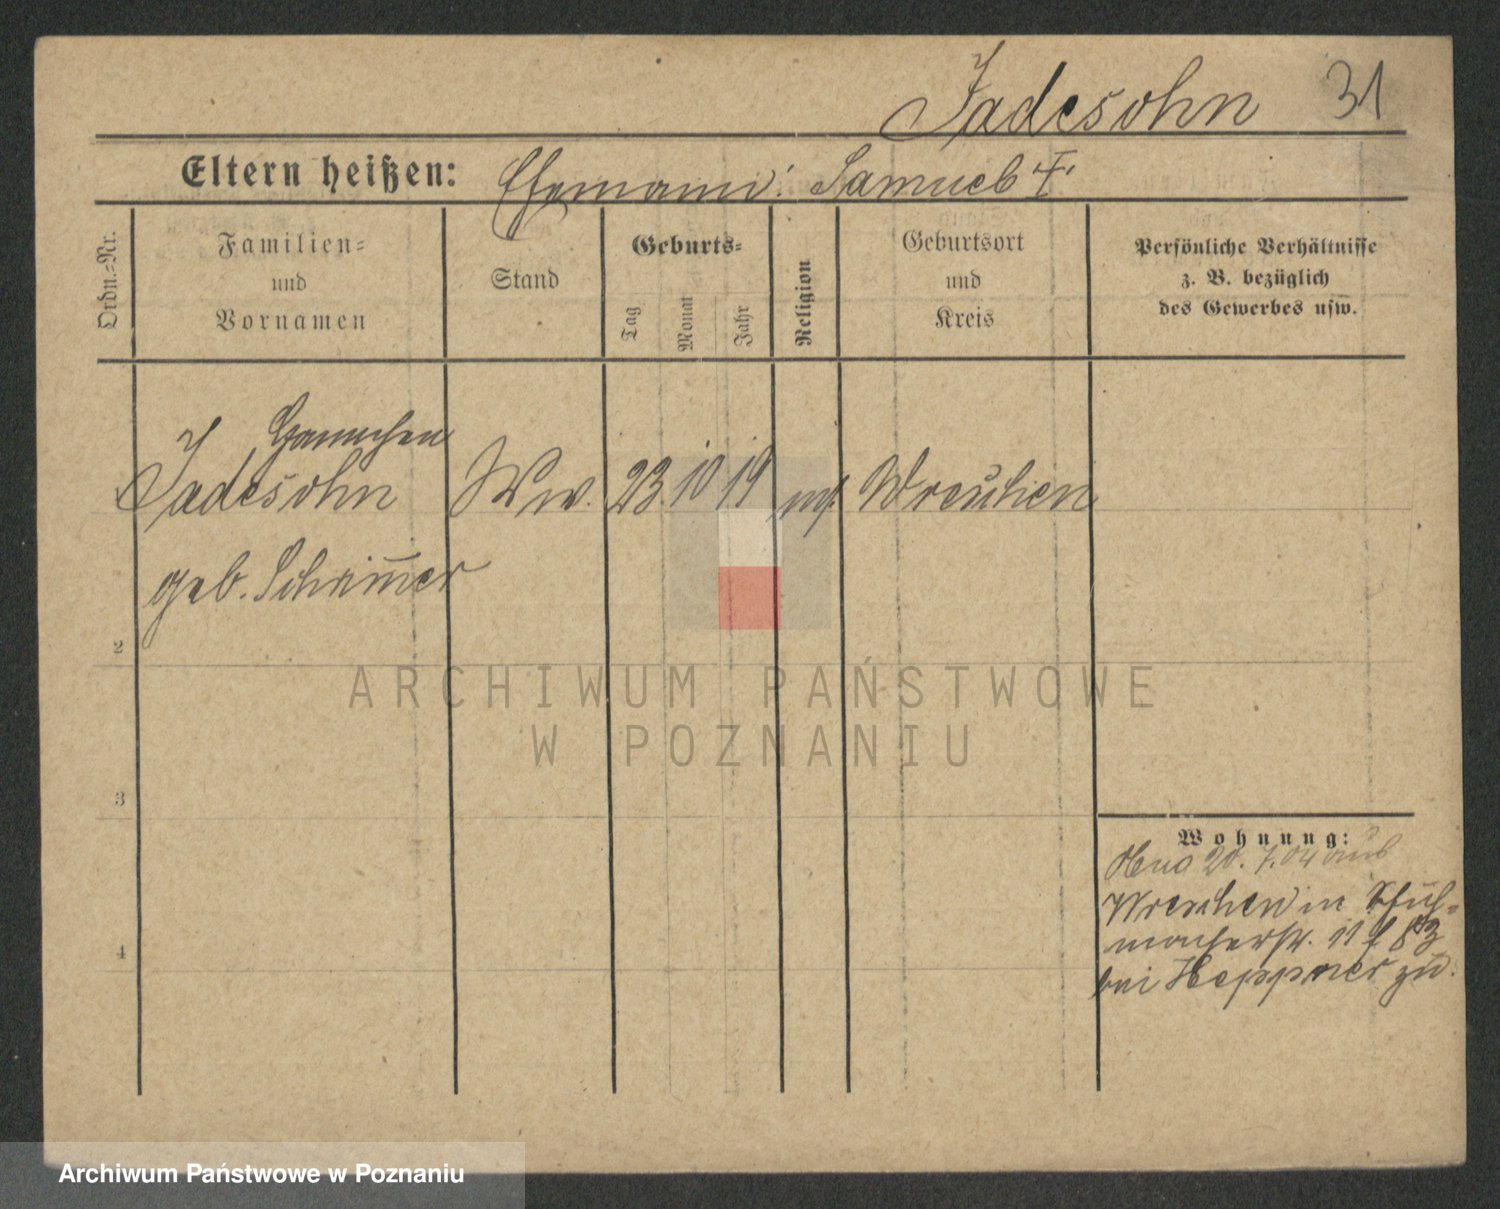 Jadesohn 31
Eltern heißen: Ehemann: Samuel †.
Ordn.-Nr.
Familien-
und
Vornamen
Stand
Geburts-
Tag
Monat
Jahr
Religion
Geburtsort
und
Kreis
Persönliche Verhältnisse
z. B. bezüglich
des Gewerbes usw.
Hannchen
Jadesohn Ww. 23 10 19 mos. Wreschen
geb. Schrimmer
2
3
4
Wohnung:
20. 7. 04 aus
Wreschen in Schuh-
macherstr. 11
bei Heppner zu.
ARCHIWUM PAŃSTWOWE
W POZNANIU
Archiwum Państwowe w Poznaniu